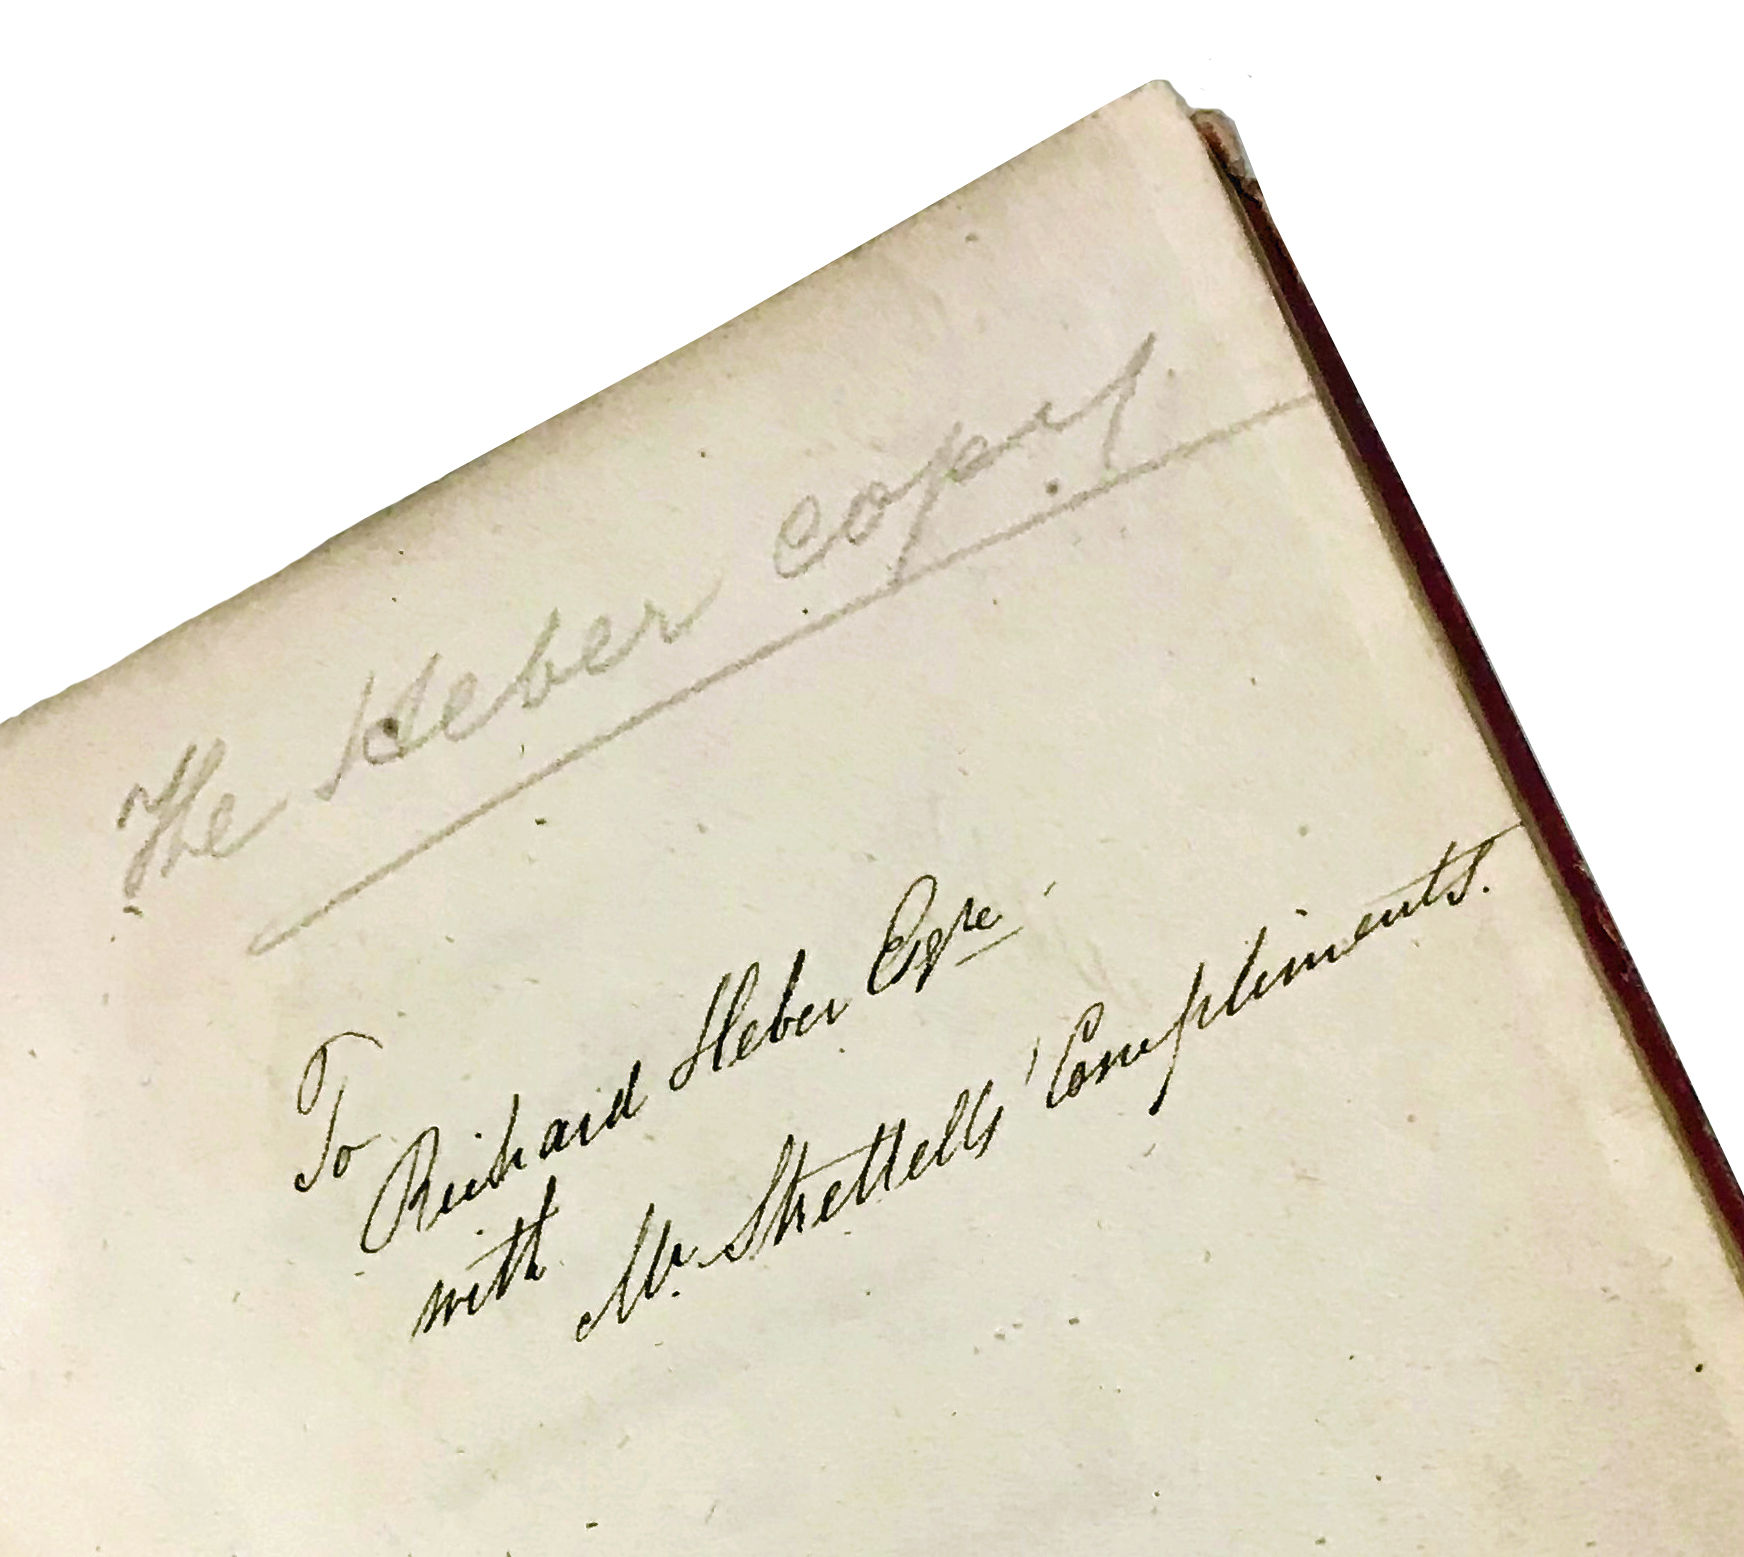 The Heber copy.
To
Richard Heber Esqre
with
Mr. Strettells' Compliments.